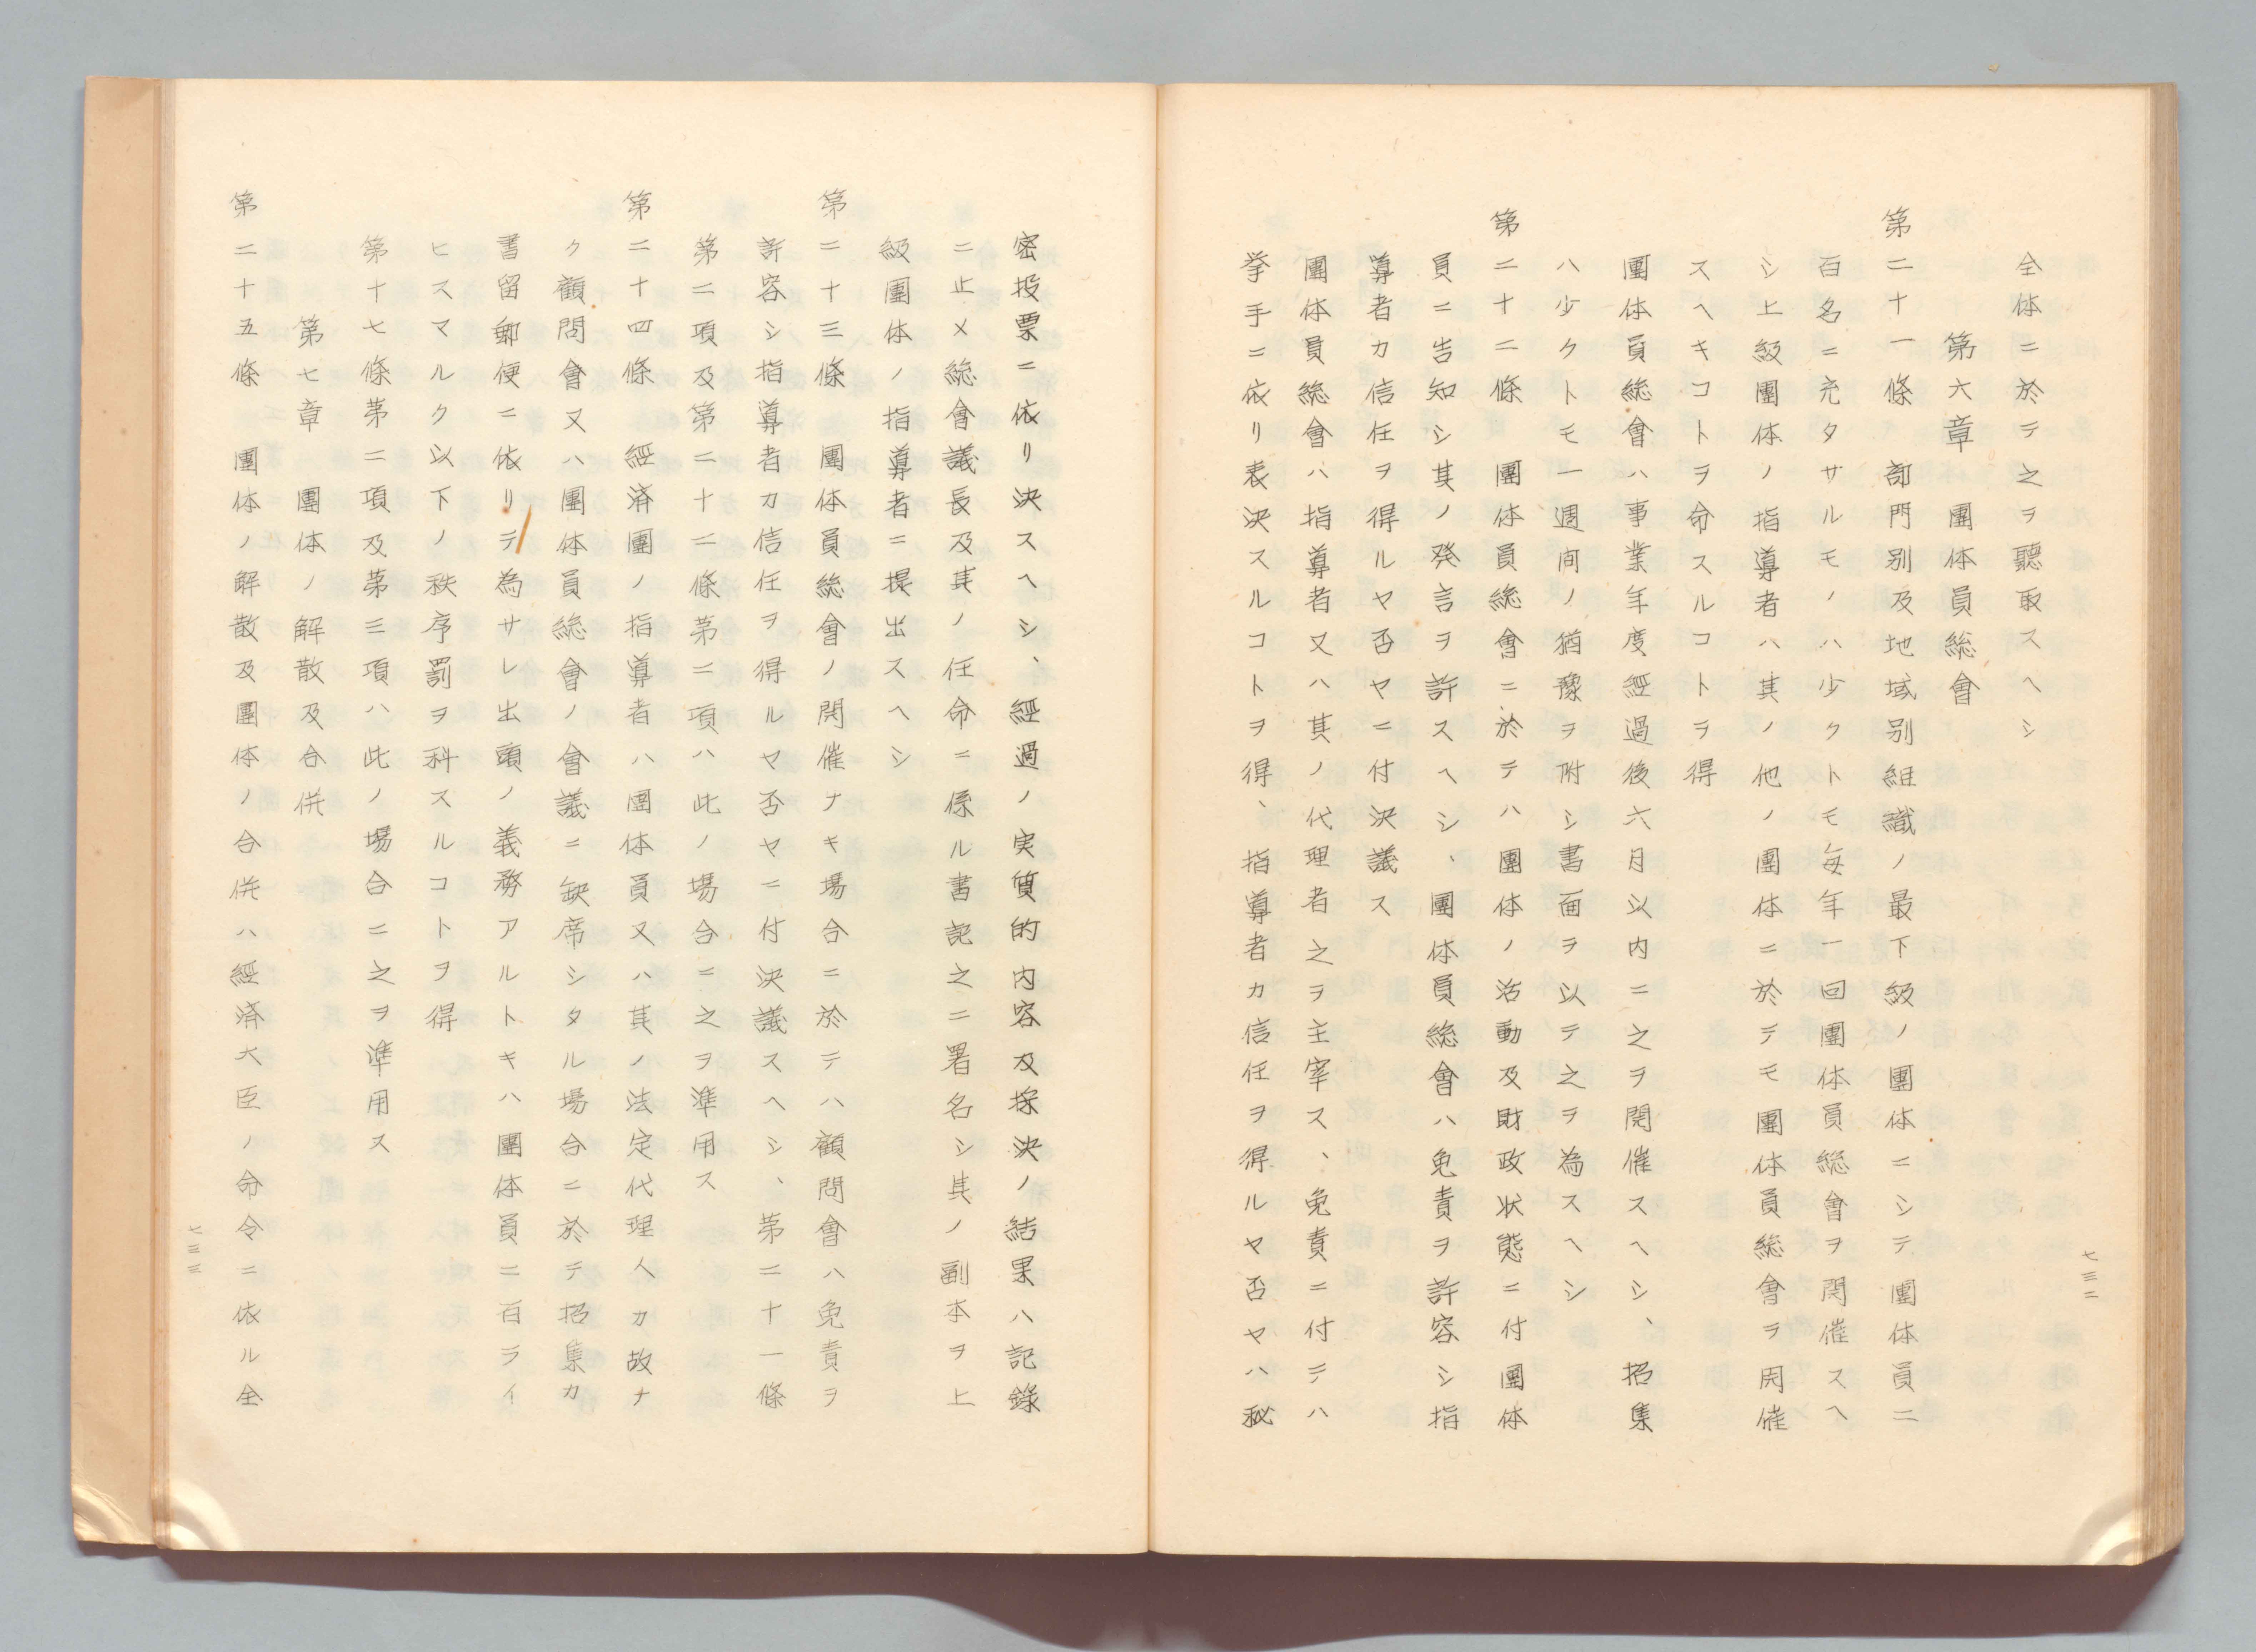 全体ニ於テ之ヲ聽取スヘシ
第六章　團体員総會
第二十一條　部門别及地域别組織ノ最下級ノ團体ニシテ團体員二
百名ニ充タサルモノハ少クトモ每年一回團体員総會ヲ開催スヘ
シ上級團体ノ指導者ハ其ノ他ノ團体ニ於テモ團体員総會ヲ開催
スヘキコトヲ命スルコトヲ得
團体員総會ハ事業年度經過後六月以内ニ之ヲ開催スヘシ、招集
ハ少クトモ一週间ノ猶豫ヲ附シ書面ヲ以テ之ヲ為スヘシ
第二十二條　團体員総會ニ於テハ團体ノ活動及財政状態ニ付團体
員ニ告知シ其ノ発言ヲ許スヘシ、團体員総會ハ免責ヲ許容シ指
導者カ信任ヲ得ルヤ否ヤニ付決議ス
團体員総會ハ指導者又ハ其ノ代理者之ヲ主宰ス、免責ニ付テハ
挙手ニ依リ表決スルコトヲ得、指導者カ信任ヲ得ルヤ否ヤハ秘
七三二
密投票ニ依リ決スヘシ、經過ノ実質的内容及採決ノ結果ハ記錄
ニ止メ総會議長及其ノ任命ニ係ル書記之ニ署名シ其ノ副本ヲ上
級團体ノ指導者ニ提出スヘシ
第二十三條　團体員総會ノ開催ナキ場合ニ於テハ顧問會ハ免責ヲ
許容シ指導者カ信任ヲ得ルヤ否ヤニ付決議スヘシ、第二十一條
第二項及第二十二條第二項ハ此ノ場合ニ之ヲ準用ス
第二十四條　經済團ノ指導者ハ團体員又ハ其ノ法定代理人カ故ナ
ク顧問會又ハ團体員総會ノ會議ニ缺席シタル場合ニ於テ招集カ
書留郵便ニ依リテ為サレ出頭ノ義務アルトキハ團体員ニ百ライ
ヒスマルク以下ノ秩序罰ヲ科スルコトヲ得
第十七條第二項及第三項ハ此ノ場合ニ之ヲ準用ス
第七章　團体ノ解散及合併
第二十五條　團体ノ解散及團体ノ合併ハ經済大臣ノ命令ニ依ル全
七三三